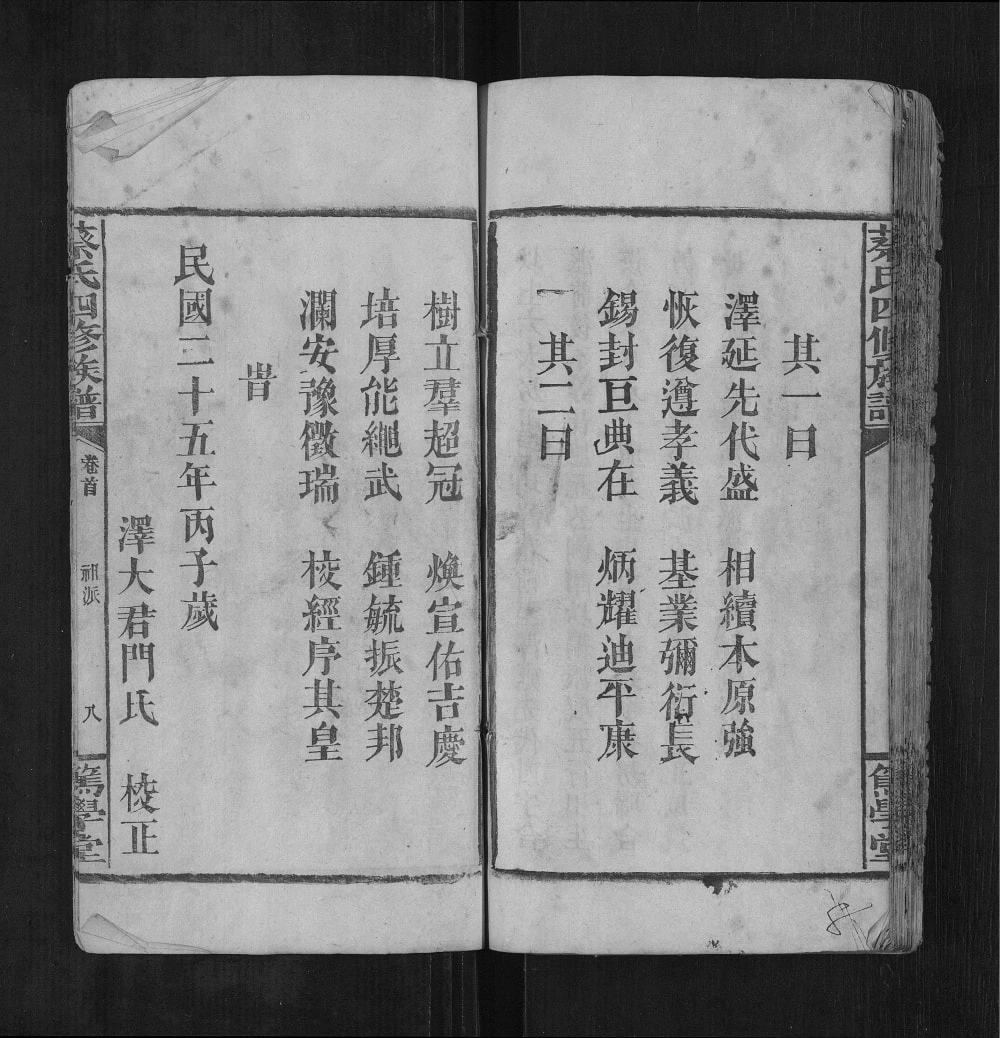 蔡氏四修族譜
篤學堂
其一曰
澤延先代盛　相續本原強
恢復遵孝義　基業彌衍長
錫封亘典在　炳耀迪平康
一其二曰
樹立羣超冠　煥宣佑吉慶
培厚能繩武　鍾毓振楚邦
瀾安豫徵瑞　校經序其皇
旹
民國二十五年丙子歲
澤大君門氏　校正
蔡氏四修族譜
卷首
祖派
八
篤學堂